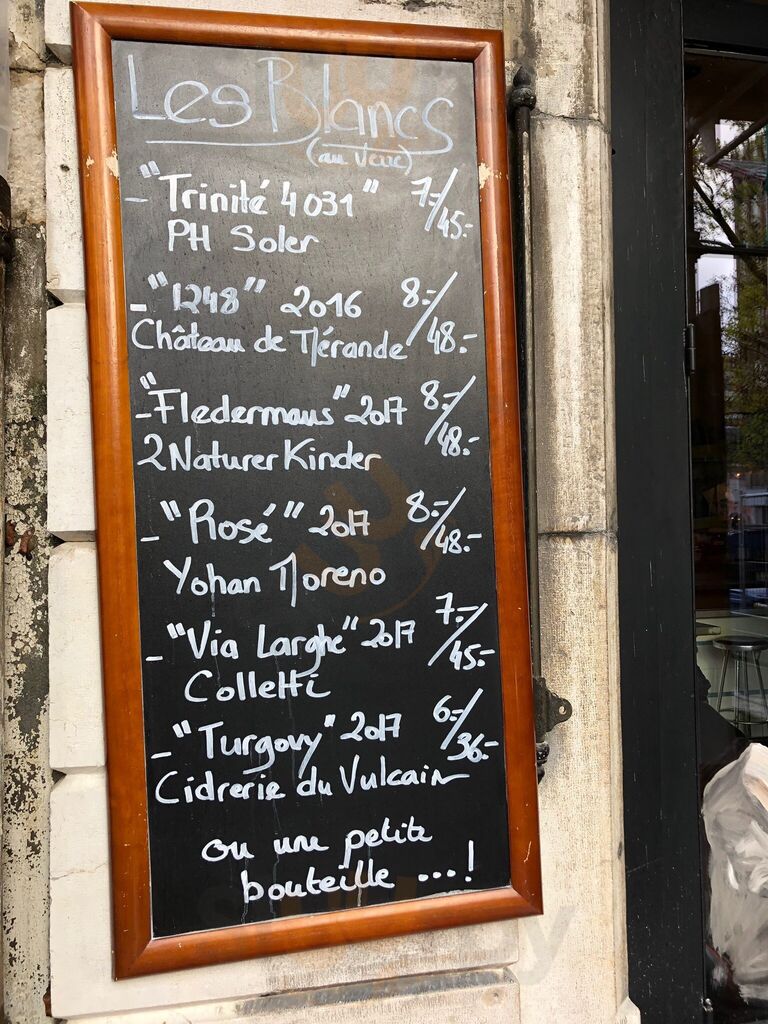 Les Blancs
(au verre)
- "Trinité 4031" 7.-/45.-
PH Soler
- "1248" 2016 8.-/48.-
Château de Mérande
- "Fledermaus" 2017 8.-/48.-
2NaturerKinder
- "Rosé" 2017 8.-/48.-
Yohan Moreno
- "Via Larghe" 2017 7.-/45.-
Colletti
- "Turgovy" 2017 6.-/36.-
Cidrerie du Vulcain
ou une petite
bouteille ...!